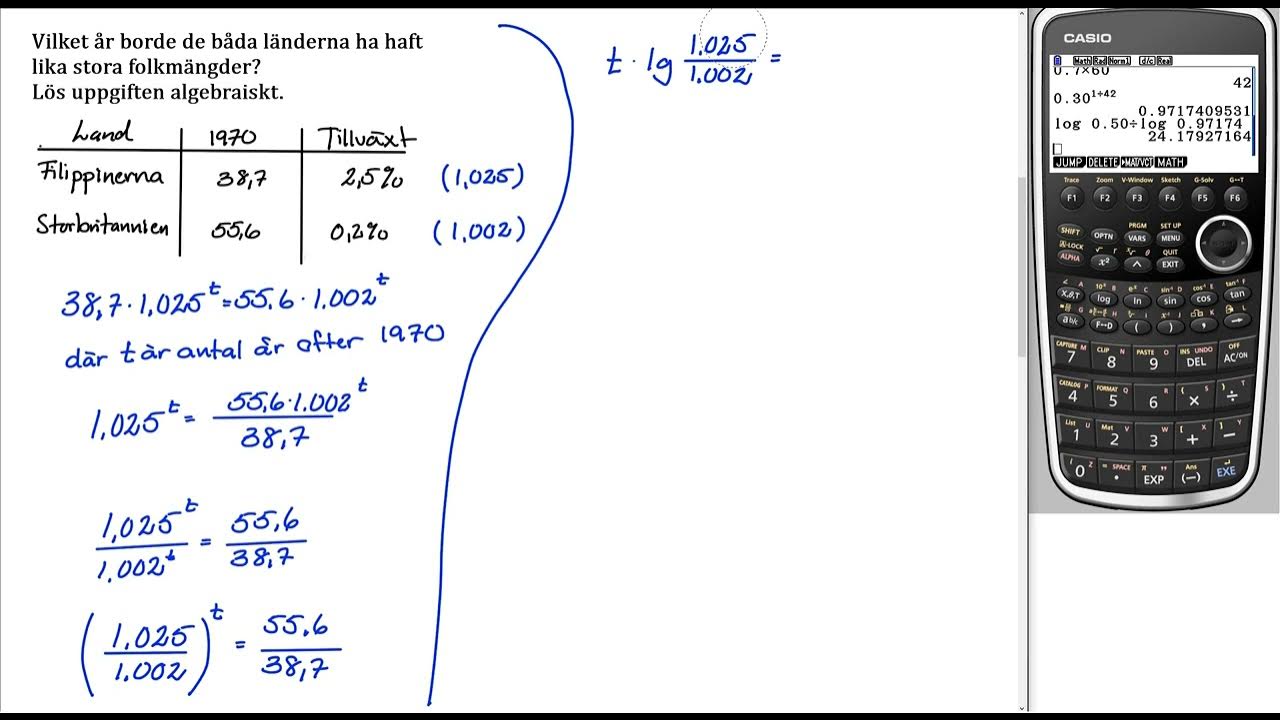 Vilket år borde de båda länderna ha haft
lika stora folkmängder?
Lös uppgiften algebraiskt.
Land 1970 Tillväxt
Filippinerna 38,7 2,5% (1,025)
Storbritannien 55,6 0,2% (1,002)
38,7·1,025^t=55.6·1.002^t
där t är antal år efter 1970
1,025^t = 55,6·1.002^t / 38,7
1,025^t / 1.002^t = 55,6 / 38,7
(1.025 / 1.002)^t = 55.6 / 38,7
t · lg 1.025 / 1.002 =
CASIO
Math Rad Norm1 d/c Real
0.7×60
42
0.30^1÷42
0.9717409531
log 0.50÷log 0.97174
24.17927164
JUMP DELETE ▶MAT/VCT MATH
Trace Zoom V-Window Sketch G-Solv G↔T
F1 F2 F3 F4 F5 F6
PRGM SET UP
SHIFT OPTN VARS MENU
A-LOCK √ QUIT
ALPHA x² ^ EXIT
∠ A 10ˣ B eˣ C sin⁻¹ D cos⁻¹ E tan⁻¹ F
X,θ,T log ln sin cos tan
a b/c F↔D ( ) , →
CAPTURE M CLIP N PASTE O INS UNDO OFF
7 8 9 DEL AC/ON
CATALOG P FORMAT Q R { S } T
4 5 6 × ÷
List U Mat V W [ X ] Y
1 2 3 + −
i Z = SPACE π " Ans
0 . EXP (−) EXE